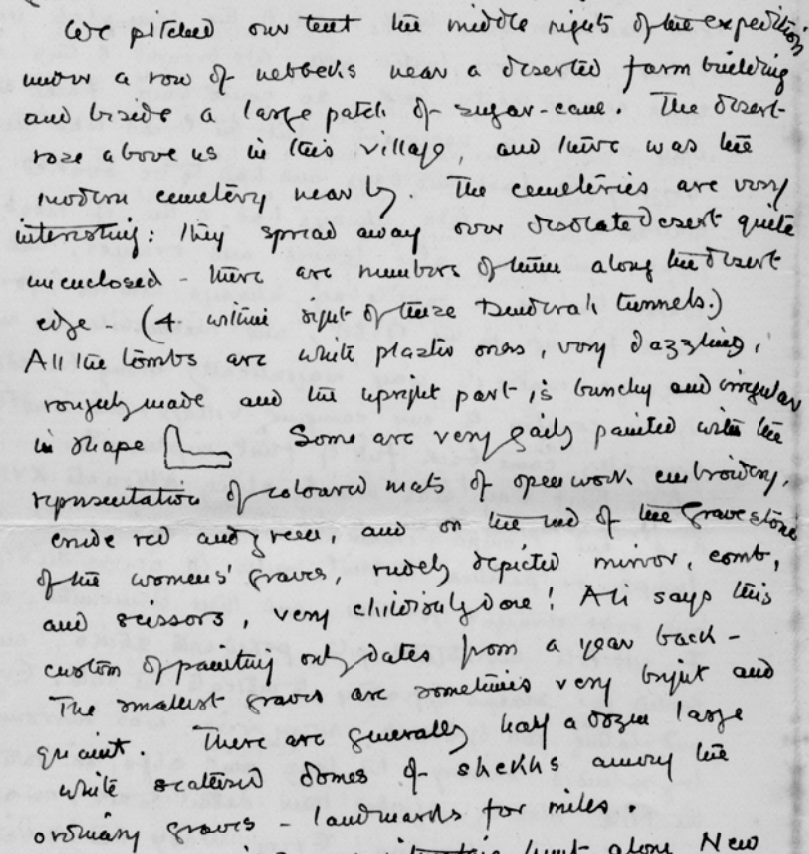 We pitched our tent the middle nights of the expedition
under a row of nebbeks near a deserted farm building
and beside a large patch of sugar-cane. The desert
rose above us in this village, and there was the
modern cemetery near by. The cemeteries are very
interesting: they spread away over desolate desert quite
unenclosed - there are numbers of them along the desert
edge - (4 within sight of these Denderah tunnels.)
All the tombs are white plaster ones, very dazzling,
roughly made and the upright part is bunchy and irregular
in shape Some are very gaily painted with the
representation of coloured mats of open work embroidery,
crude red and green, and on the end of the gravestone
of the womens' graves, rudely depicted mirror, comb,
and scissors, very childishly done! Ali says this
custom of painting only dates from a year back -
The smallest graves are sometimes very bright and
quaint. There are generally half a dozen large
white scattered domes of shekhs among the
ordinary graves - landmarks for miles.
alone New